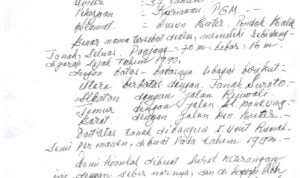 Umur : 37 tahun
Pekerjaan : Karyawan PGM.
Alamat : Dusun Buter, Pondok Kaha
Benar nama tersebut diatas, memiliki sebidang
Tanah, seluas. Panjang = 70 m. Lebar : 16 m.
digarap sejak tahun 1990.
dengan batas-batasnya sebagai berikut :
Utara berbatas dengan. Tanah Suroto
Selatan dengan jalan
Timur dengan jalan
Barat dengan jalan Dsn Buter.
Batas tanah dibangun 1. Unit Rumah.
Semi Permanen, dibuat Pada Tahun 1993.
Demikianlah dibuat Surat Keterangan
ini dengan sebenarnya, dan di